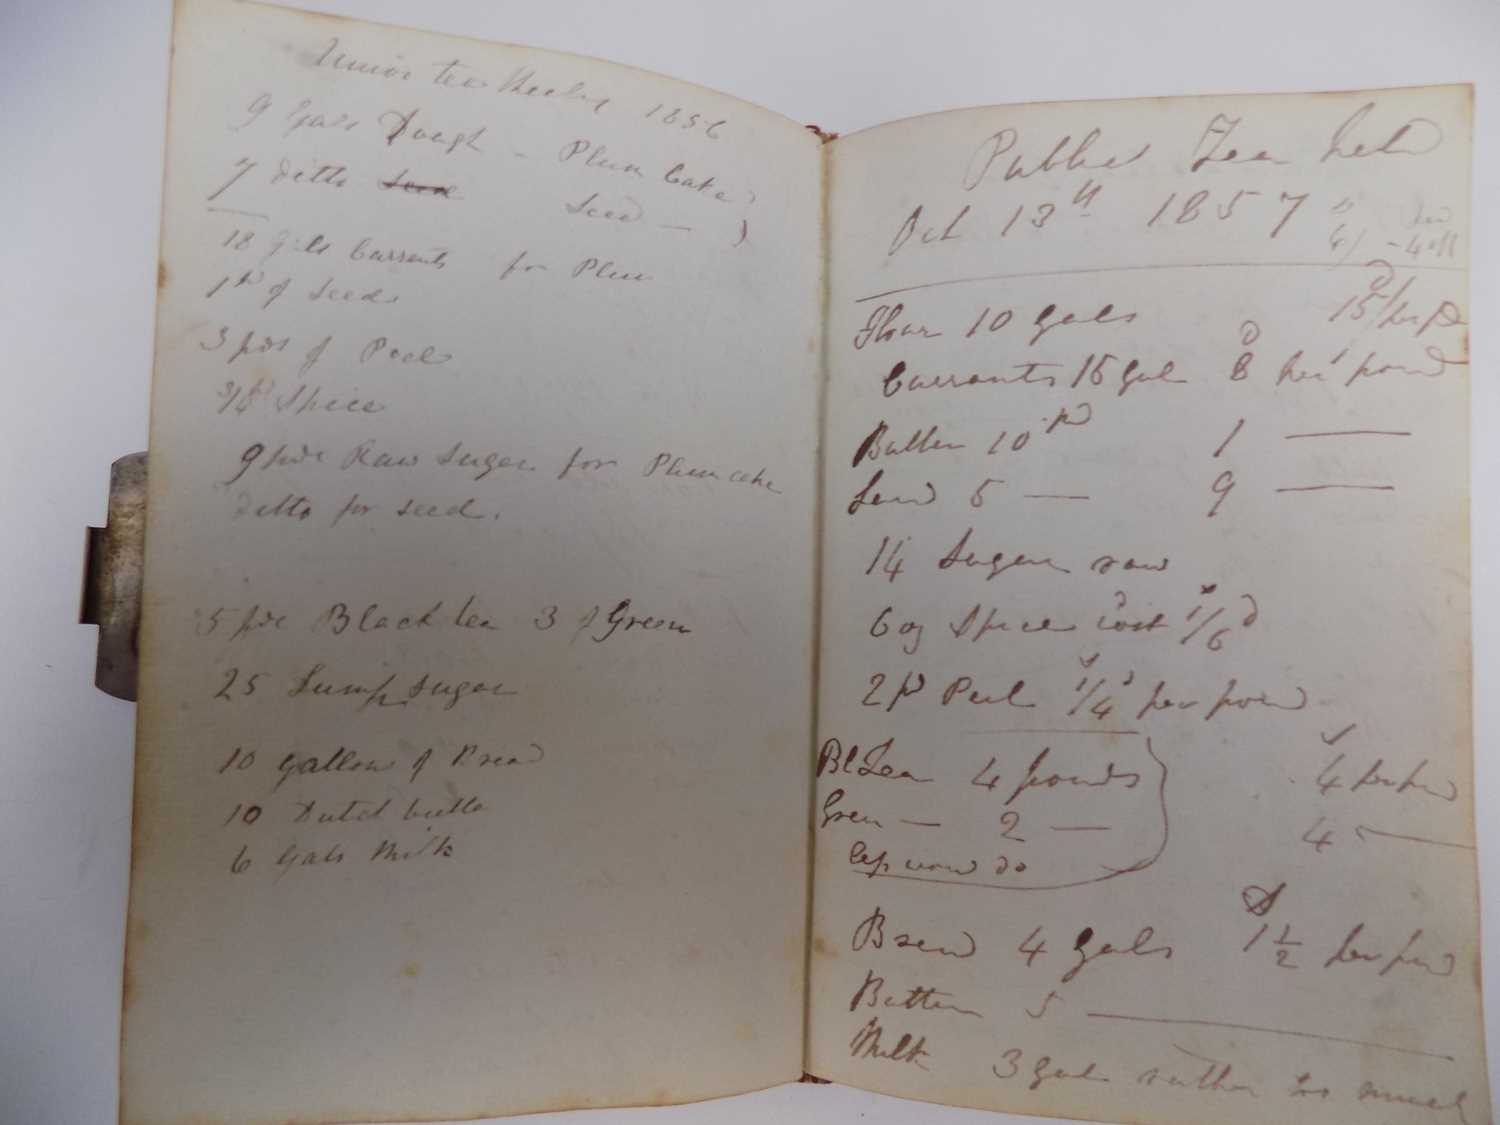 Union tea Meeting 1856
9 Gals Dough - Plum Cake
7 ditto Seed —
18 Gals Currants for Plum
1 lb of Seeds
3 pds of Peel
3/4 Spice
9 pds Raw Sugar for Plum cake
ditto for seed.
5 pds Black tea 3 of Green
25 Lump sugar
10 gallons of Bread
10 Dutch butter
6 Gals Milk
Public Tea held
Oct 13th 1857
Flour 10 Gals 15d/ per
Currants 16 Gal 8d per pound
Butter 10 pd 1 —
Lard 5 — 9 —
14 Sugar raw
6 oz Spice cost 1s/6d
2 pd Peel 1s/4d per pound
Bl Tea 4 pounds 4s per
Green — 2 — 4 —
do
Bread 4 Gals 1 1/2 per
Butter 5 —
Milk 3 Gals rather too much